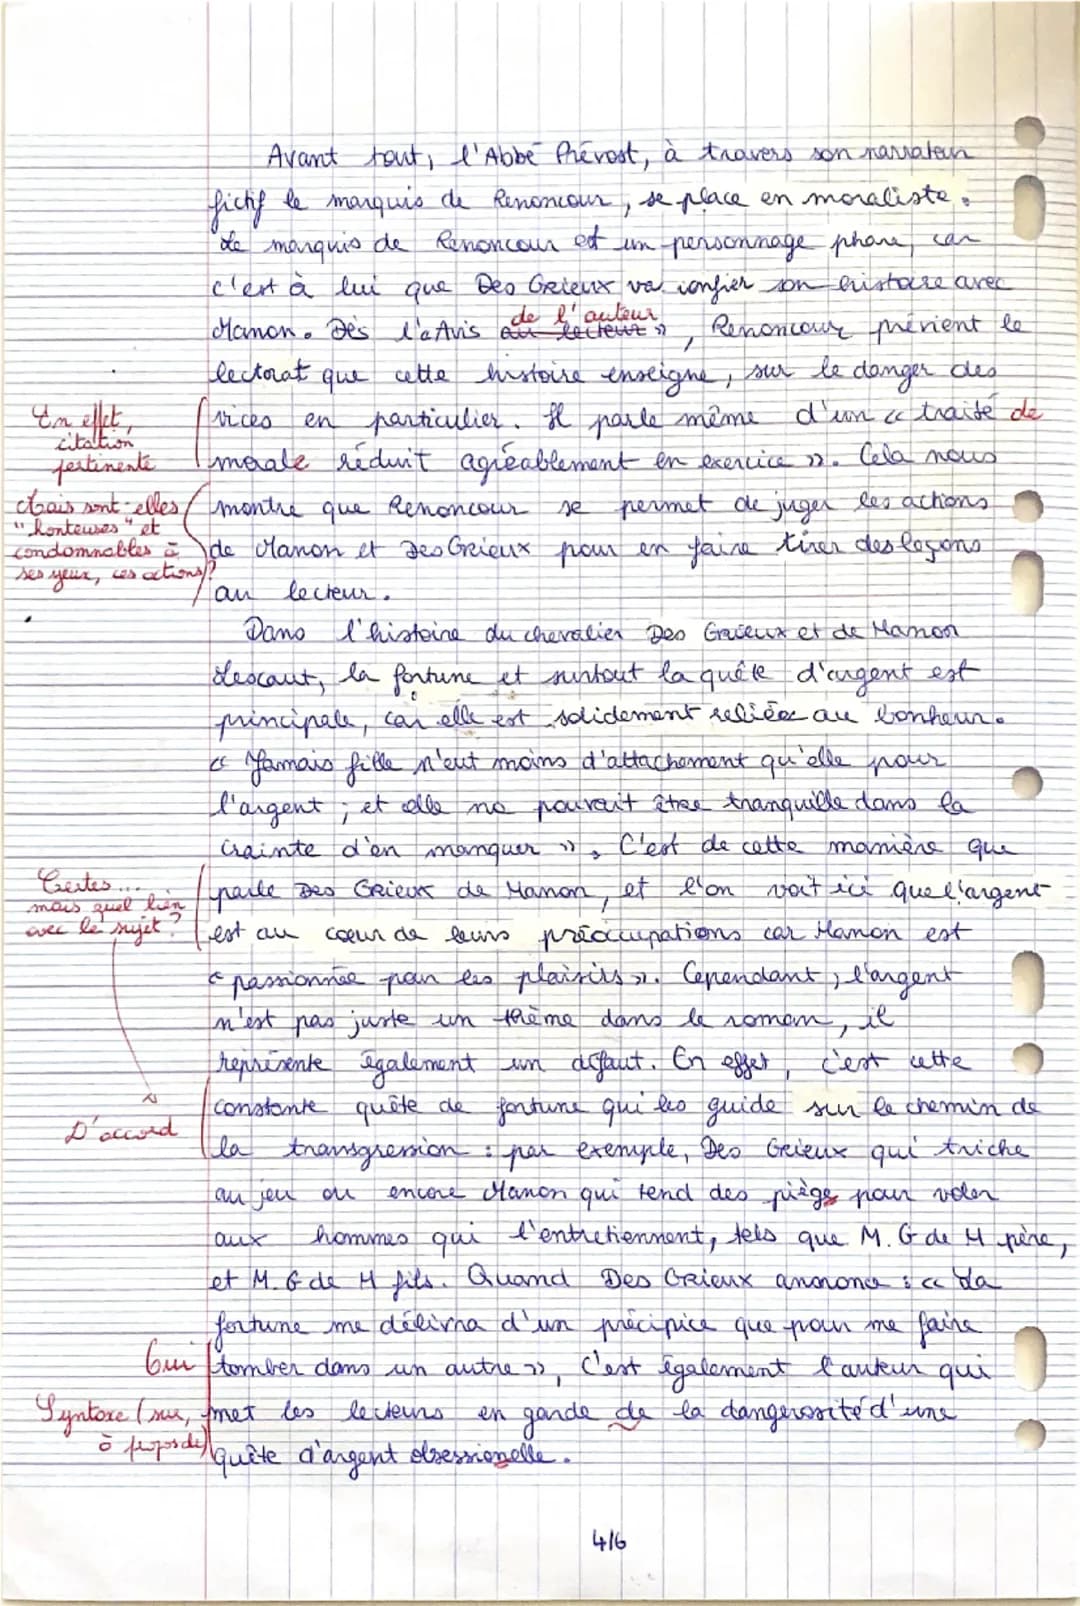 Avant tout, l'Abbé Prévost, à travers son narrateur
fictif le marquis de Renoncour, se place en moraliste.
Le marquis de Renoncour est un personnage phare, car
c'est à lui que Des Grieux va confier son histoire avec
de l'auteur
Manon. Dès l'« Avis au lecteur », Renoncour prévient le
lectorat que cette histoire enseigne, sur le danger des
En effet,
citation
pertinente
vices en particulier. Il parle même d'un « traité de
morale réduit agréablement en exercice ». Cela nous
Mais sont-elles
"honteuses" et
condamnables à
ses yeux, ces actions ?
montre que Renoncour se permet de juger les actions
de Manon et Des Grieux pour en faire tirer des leçons
au lecteur.
Dans l'histoire du chevalier Des Grieux et de Manon
Lescaut, la fortune et surtout la quête d'argent est
principale, car elle est solidement reliée au bonheur.
« Jamais fille n'eut moins d'attachement qu'elle pour
l'argent ; et elle ne pouvait être tranquille dans la
crainte d'en manquer ». C'est de cette manière que
Certes...
mais quel lien
avec le sujet ?
parle Des Grieux de Manon, et l'on voit ici que l'argent
est au cœur de leurs préoccupations car Manon est
« passionnée par les plaisirs ». Cependant, l'argent
n'est pas juste un thème dans le roman, il
représente également un défaut. En effet, c'est cette
D'accord
constante quête de fortune qui les guide sur le chemin de
la transgression : par exemple, Des Grieux qui triche
au jeu ou encore Manon qui tend des pièges pour voler
aux hommes qui l'entretiennent, tels que M. G de M père,
et M. G de M fils. Quand Des Grieux annonce : « La
fortune me délivra d'un précipice que pour me faire
Oui
tomber dans un autre », c'est également l'auteur qui
Syntaxe (sur,
à propos de)
met les lecteurs en garde de la dangerosité d'une
quête d'argent obsessionelle.
4/6